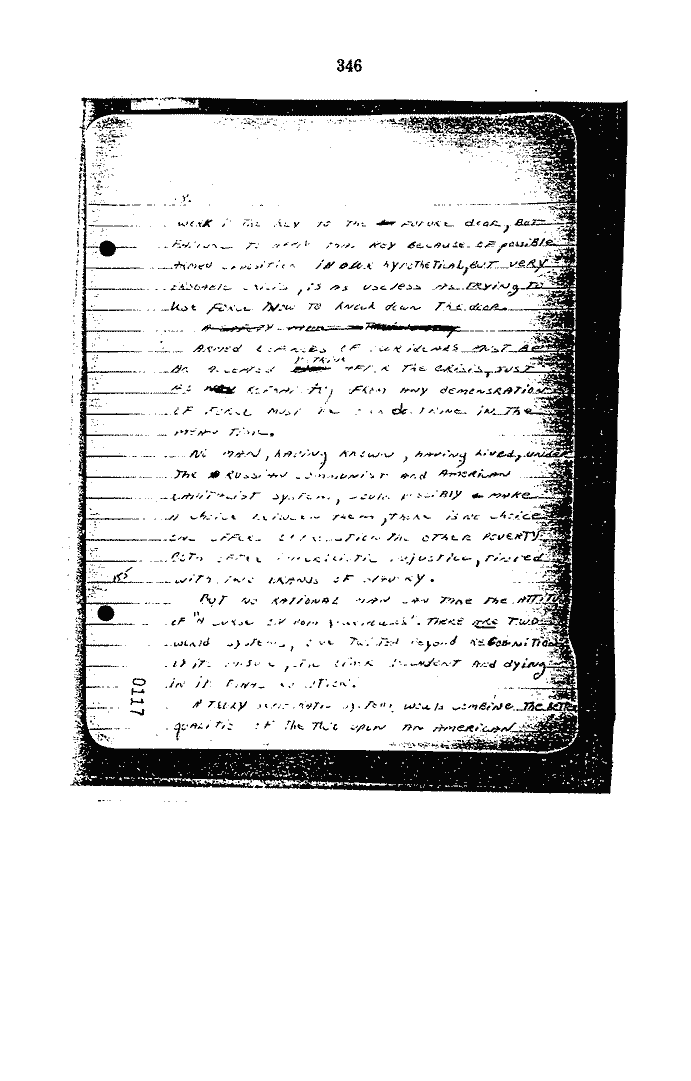 346
work is the key to the future door, but
failure to apply that key because of possible
armed opposition in our hypothetical, but very
probable crisis, is as useless as trying to
use force now to knock down the door.
Armed defenses of our ideals must be
an after the crisis, just
as from any demonsration
of force must be our doctrine in the
mean time.
No man, having known, having lived, under
the Russian communist and American
capitalist system, could possibly make
a choice between them, there is no choice
one offers oppression the other poverty.
Both offer imperilistic injustice, tinted
with two brands of slavery.
But no rational man can take the attitu
of "a curse on both". There are two
world systems, one twisted beyond recognition
by its misuse, the other decadent and dying
in it final evolution.
A truly democratic system would combine the better
qualitis of the two upon an american
0117